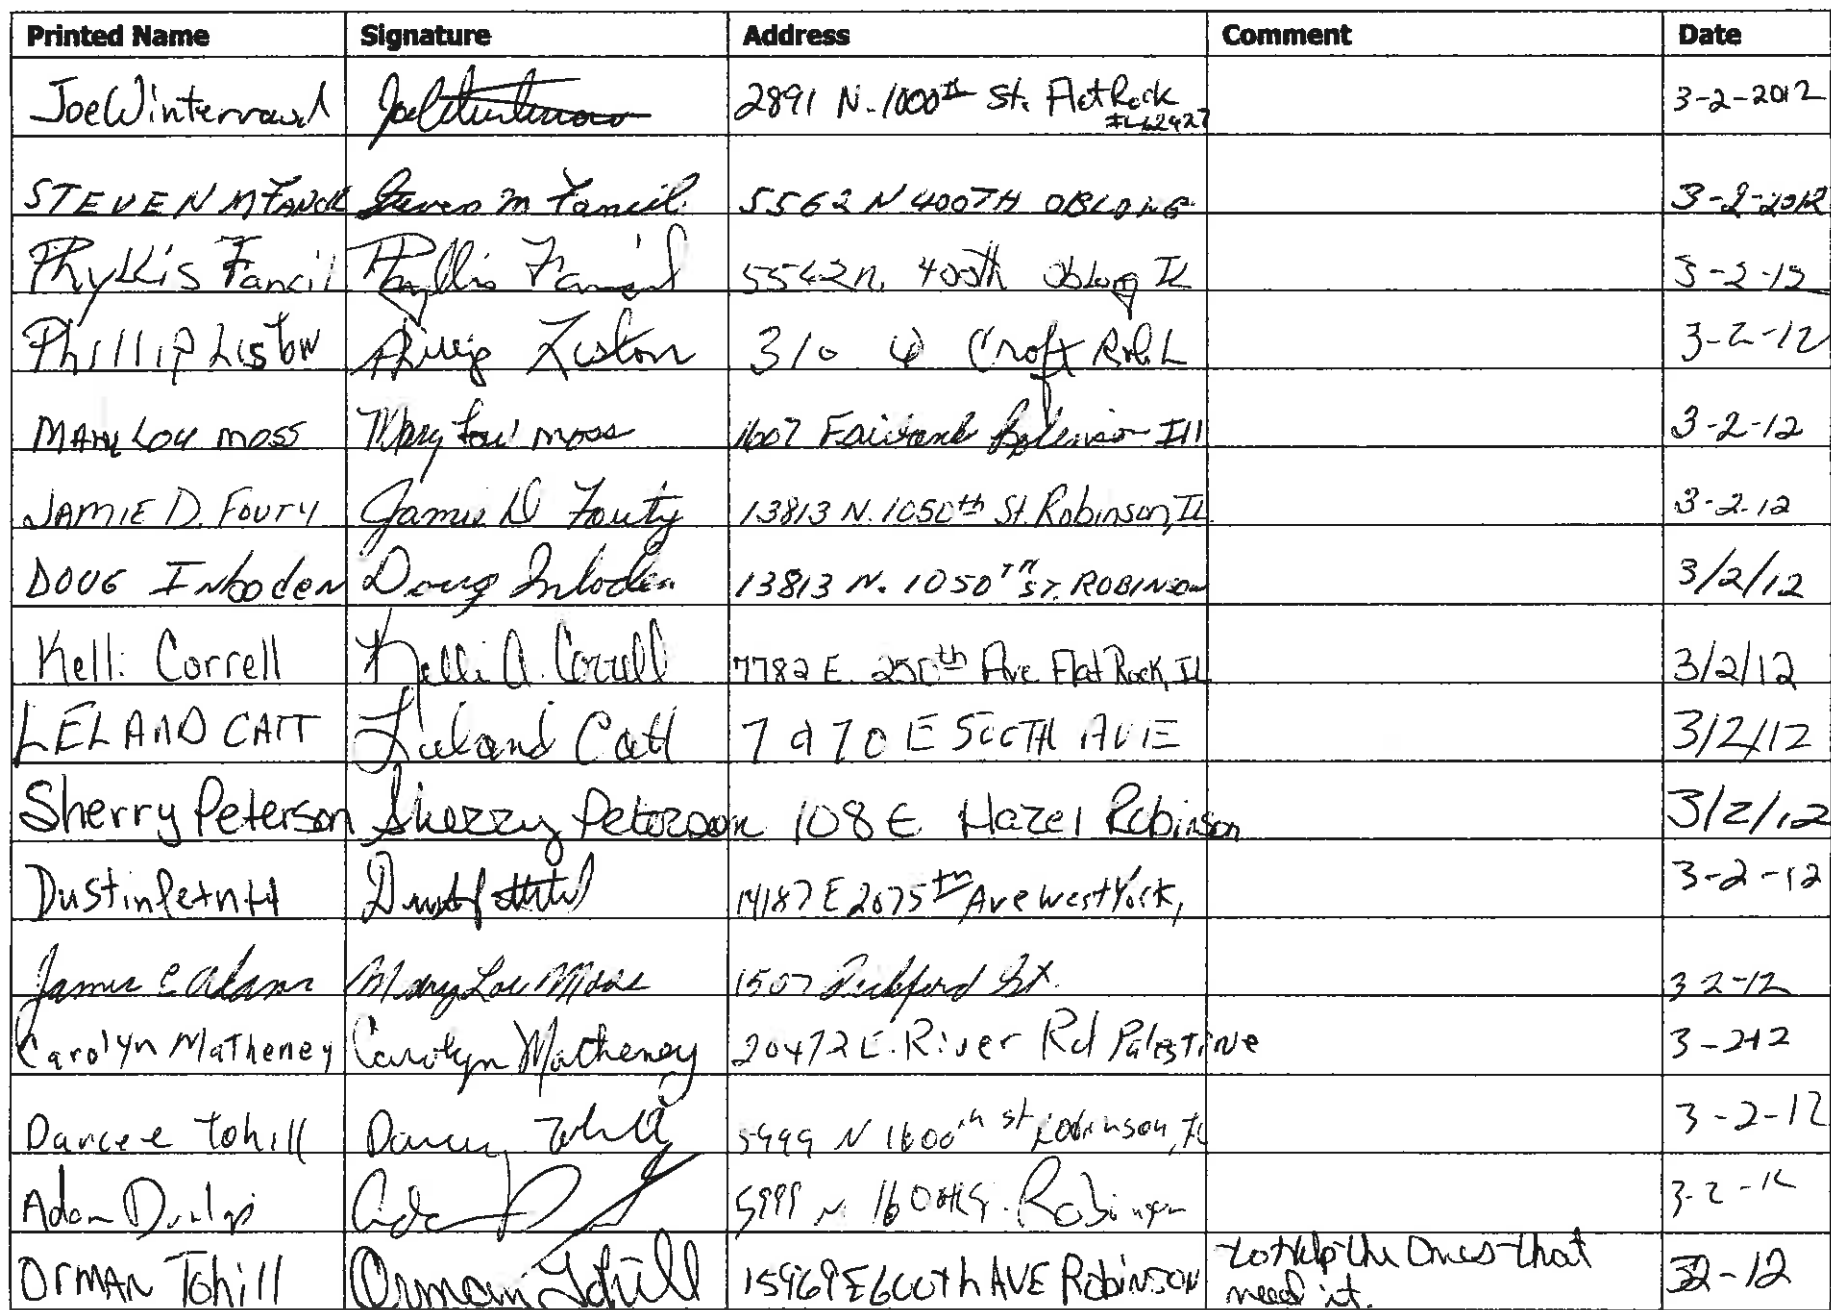 Printed Name Signature Address Comment Date
Joe Winterrowd 2891 N. 1000th St. Flat Rock 3-2-2012
IL 62427
STEVEN M FANCIL Steven M Fancil 5562 N 400TH OBLONG 3-2-2012
Phyllis Fancil Phyllis Fancil 5562 N. 400th Oblong IL 3-2-12
Phillip Liston Phillip Liston 310 W Croft 3-2-12
MARY LOU MOSS Mary Lou Moss 1607 Robinson Ill 3-2-12
JAMIE D. FOUTY Jamie D Fouty 13813 N. 1050th St. Robinson, IL 3-2-12
DOUG Inboden Doug Inboden 13813 N. 1050TH ST. ROBINSON 3/2/12
Kelli Correll Kelli A. Correll 7782 E. 250th Ave Flat Rock, IL 3/2/12
LELAND CATT Leland Catt 7970 E 500TH AVE 3/2/12
Sherry Peterson Sherry Peterson 108 E Hazel Robinson 3/2/12
Dustin 14187 E 2075th Ave West York, 3-2-12
James E Adams Mary Lou Moss 1507 St. 3-2-12
Carolyn Matheney Carolyn Matheney 20472 E. River Rd Palestine 3-2-12
Darcee Tohill Darcee Tohill 5999 N 1600th St Robinson, IL 3-2-12
Adam Dunlap 5999 N 1600th Robinson 3-2-12
Orman Tohill Orman Tohill 15969 E 600th AVE Robinson to Help the Ones that 3 2-12
need it.